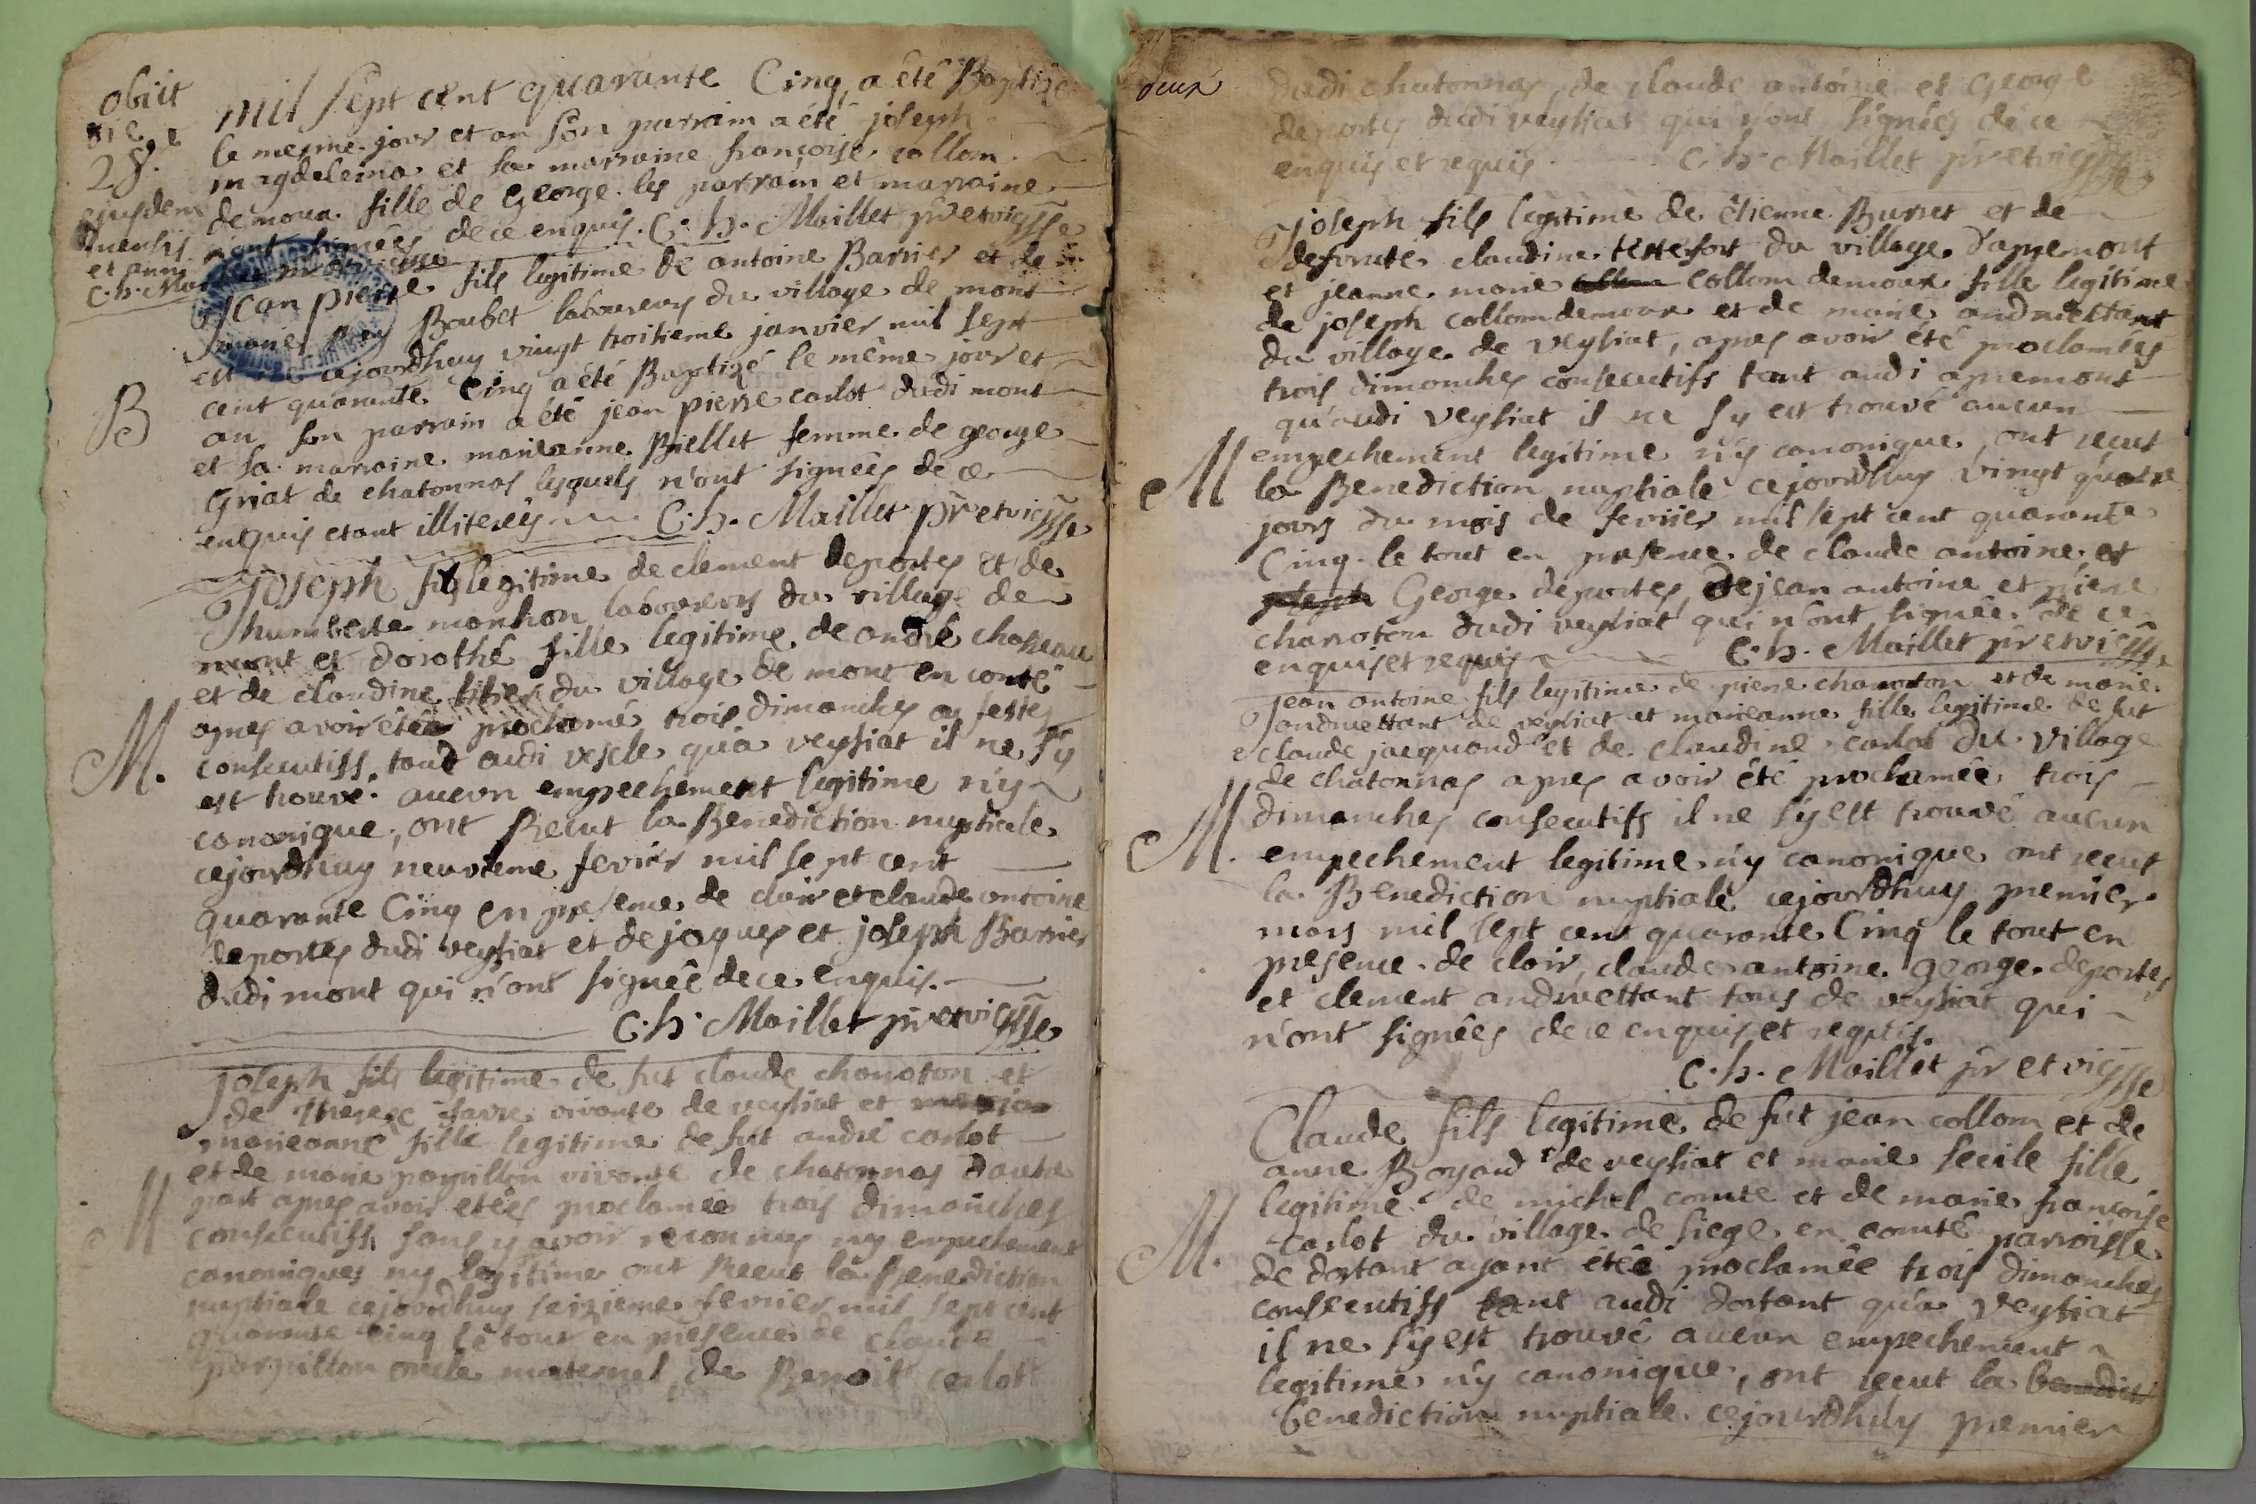 obiit
die
28.e
ejusdem
mensis
et anni
C. h. Mai
mil sept cent quarante Cinq, a été Baptizé
le mesme jour et an son parrain a été joseph
magdeleina et la marraine françoise collom
demoux fille de George. les parrain et marraine
n'ont signées de ce enquis. C. h. Maillet pr̃e et vic̃sse
Jean pierre fils legitime de antoine Barrier et de
marie Boubet laboureurs du village de mont
est né cejourdhuy vingt troisieme janvier mil sept
cent quarante Cinq a été Baptizé le même jour et
B
an son parrain a été jean pierre carlot dudi mont
et sa marraine marieanne Briellet femme de george
Griat de chatonnas lesquels n'ont signées de ce
enquis etant illiterés C. h. Maillet pr̃e et vic̃sse
Joseph fils legitime de clement deportes et de
humberte monhon laboureurs du village de
mont et dorothé fille legitime de andré chasseau
et de claudine du village de mont en conté
apres avoir étée proclamé trois dimanches ou festes
M.
consecutifs tant audi vescle qu'a veysiat il ne s'y
est trouvé aucun empechement legitime n'y
canonique, ont Recut la Benediction nuptiale
cejourdhuy neuvieme fevrier mil sept cent
quarante Cinq en presence de clair et claude antoine
deportes dudi veysiat et de jaques et joseph Barrier
dudi mont qui n'ont signée de ce enquis.
C. h. Maillet pr̃e et vic̃sse
Joseph fils legitime de fut claude chanoton et
de therese favre vivante de veysiat et
marieanne fille legitime de fut andre carlot
et de marie papillon vivante de chatonnas dautre
M
part apres avoir etées proclamée trois dimanches
consecutifs sans y avoir reconnus ny empechement
canoniques ny legitime ont Recut la Benediction
nuptiale cejourdhuy seizieme fevrier mil sept cent
quarante cinq le tout en presence de claude
papillon oncle maternel, de Benoit carlot
deux
dudi chatonnas, de claude antoine et George
deportes dudi veysiat qui n'ont signées de ce
enquis et requis. C. h. Maillet pr̃e et vic̃sse
Joseph fils legitime de étienne Burret et de
defunte claudine tettefort du village d'apremont
et jeanne marie collom demoux fille legitime
de joseph collom demoux et de marie andruettant
du village de veysiat, apres avoir été proclamées
trois dimanches consecutifs tant audi apremont
qu'audi veysiat il ne s'y est trouvé aucun
M
empechement legitime n'y canonique, ont recut
la Benediction nuptiale cejourdhuy vingt quatre
jours du mois de fevrier mil sept cent quarante
Cinq. le tout en presence de claude antoine et
George deportes, de jean antoine et pierre
chanoton dudi veysiat qui n'ont signée de ce
enquis et requis C. h. Maillet pr̃e et vic̃sse
Jean antoine fils legitime de pierre chanoton et de marie
andruettant de veysiat et marieanne fille legitime de fut
claude jacquand et de claudine carlot du village
de chatonnas apres avoir été proclamée trois
M.
dimanches consecutifs il ne s'y est trouvé aucun
empechement legitime n'y canonique ont recut
la Benediction nuptiale cejourdhuy premier
mars mil sept cent quarante Cinq le tout en
presence de clair, claude antoine, George deportes
et clement andruettant tous de veysiat qui
n'ont signées de ce enquis et requis.
C. h. Maillet pr̃e et vic̃sse
Claude fils legitime de fut jean collom et de
anne Boyaud de veysiat et marie secile fille
legitime de michel comte et de marie françoise
M.
carlot du village de siege en comté parroisse
de dortant ayant étée proclamée trois dimanches
consecutifs tant audi dortant qu'a veysiat
il ne s'y est trouvé aucun empechement
legitime n'y canonique, ont recut la
benediction nuptiale cejourdhuy premier